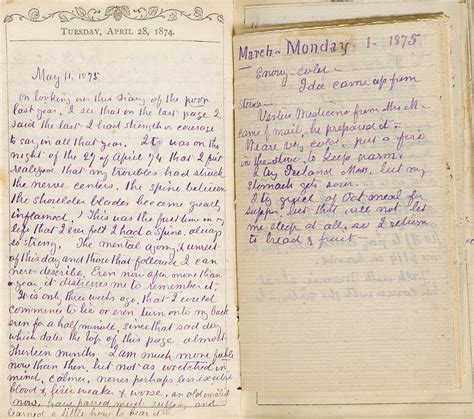 TUESDAY, APRIL 28, 1874.
May 11, 1875
On looking over this Diary of the poor
last year, I see that on the last page I
said the last I had strength or courage
to say in all that year. It was on the
night of the 27 of April 74 that I first
realized that my troubles had struck
the nerve centers, the spine between
the shoulder blades became greatly
inflamed. This was the first time in my
life that I ever felt I had a Spine, always
so strong. The mental agony & unrest
of this day and those that followed I can
never describe. Even now after more than
a year, it distresses me to remember it.
It is only three weeks ago, that I could
commence to lie or even turn onto my back
even for a half minute, since that sad day
which dates the top of this page almost
Thirteen months. I am much more feeble
now than then but not as wretched in
mind, calmer, nerves perhaps less excitable
blood & fires weaker & worse, an old wasted
now, have passed much suffering and
learned a little how to bear it
March - Monday 1 - 1875
Snowy - cold -
Ida came up from
stores -
Medicine from Mrs
came by mail, he prepared it -
We are very cold, put a fire
in the to keep warm.
I try Iceland Moss, but my
stomach gets sour.
I try gruel of Oat meal for
supper, but that will not let
me sleep at all, so I return
to bread & fruit.